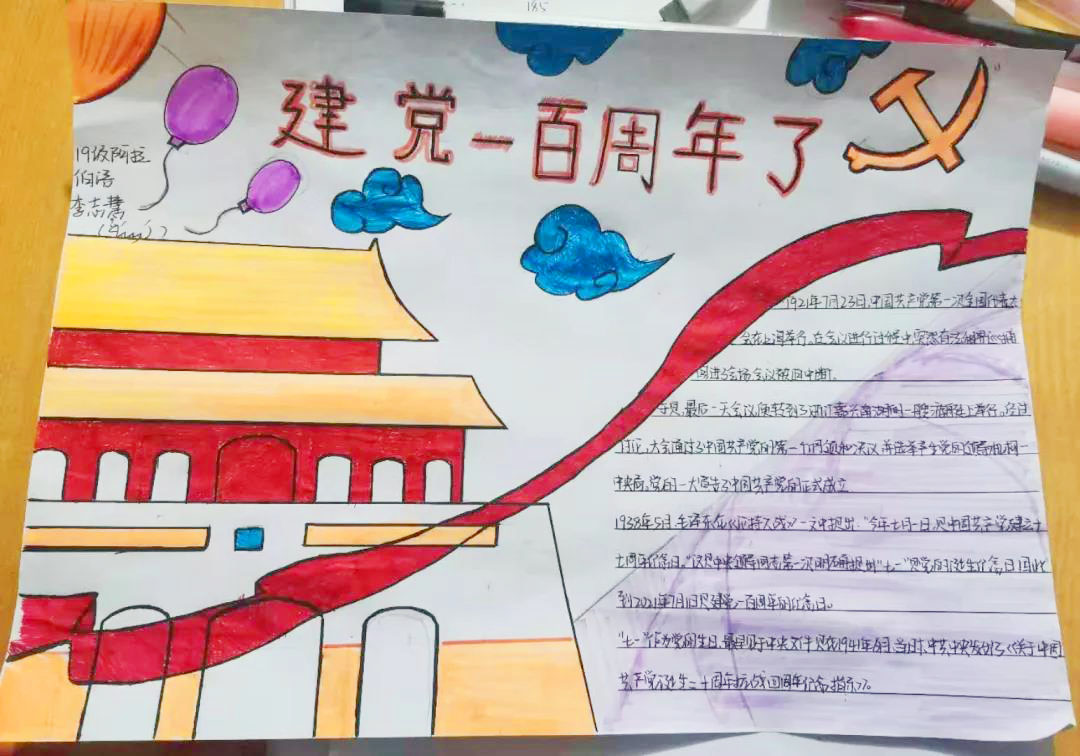 185
建党一百周年了
19级阿拉
伯语
李志慧
1921年7月23日,中国共产党第一次全国代表大
会在上海举行,在会议进行过程中突然有法租界巡捕
闯进了会场,会议被迫中断。
于是,最后一天会议便转到了浙江嘉兴南湖的一艘游船上举行,经过
讨论,大会通过了中国共产党的第一个纲领和决议,并选举产生党的领导机构—
中央局,党的一大宣告了中国共产党的正式成立
1938年5月,毛泽东在《论持久战》一文中提出:"今年七月一日,是中国共产党建立十
七周年纪念日。"这是中央领导同志第一次明确提出"七一"是党的诞生纪念日因此
到2021年7月1日是建党一百周年的纪念日。
"七一"作为党的生日,最早见于中央文件是在1941年6月,当时,中共中央发出了《关于中国
共产党诞生二十周年抗战四周年纪念指示》。